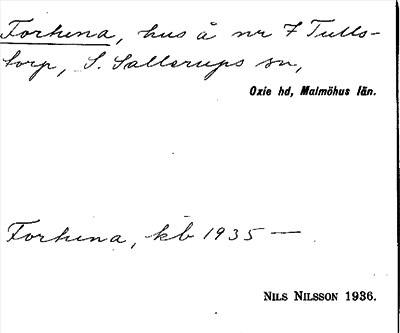 Forhena, hus å nr 7 Tulls-
torp, S. Sallerups sn,
Oxie hd, Malmöhus län.
Forhena, kb 1935 —
NILS NILSSON 1936.